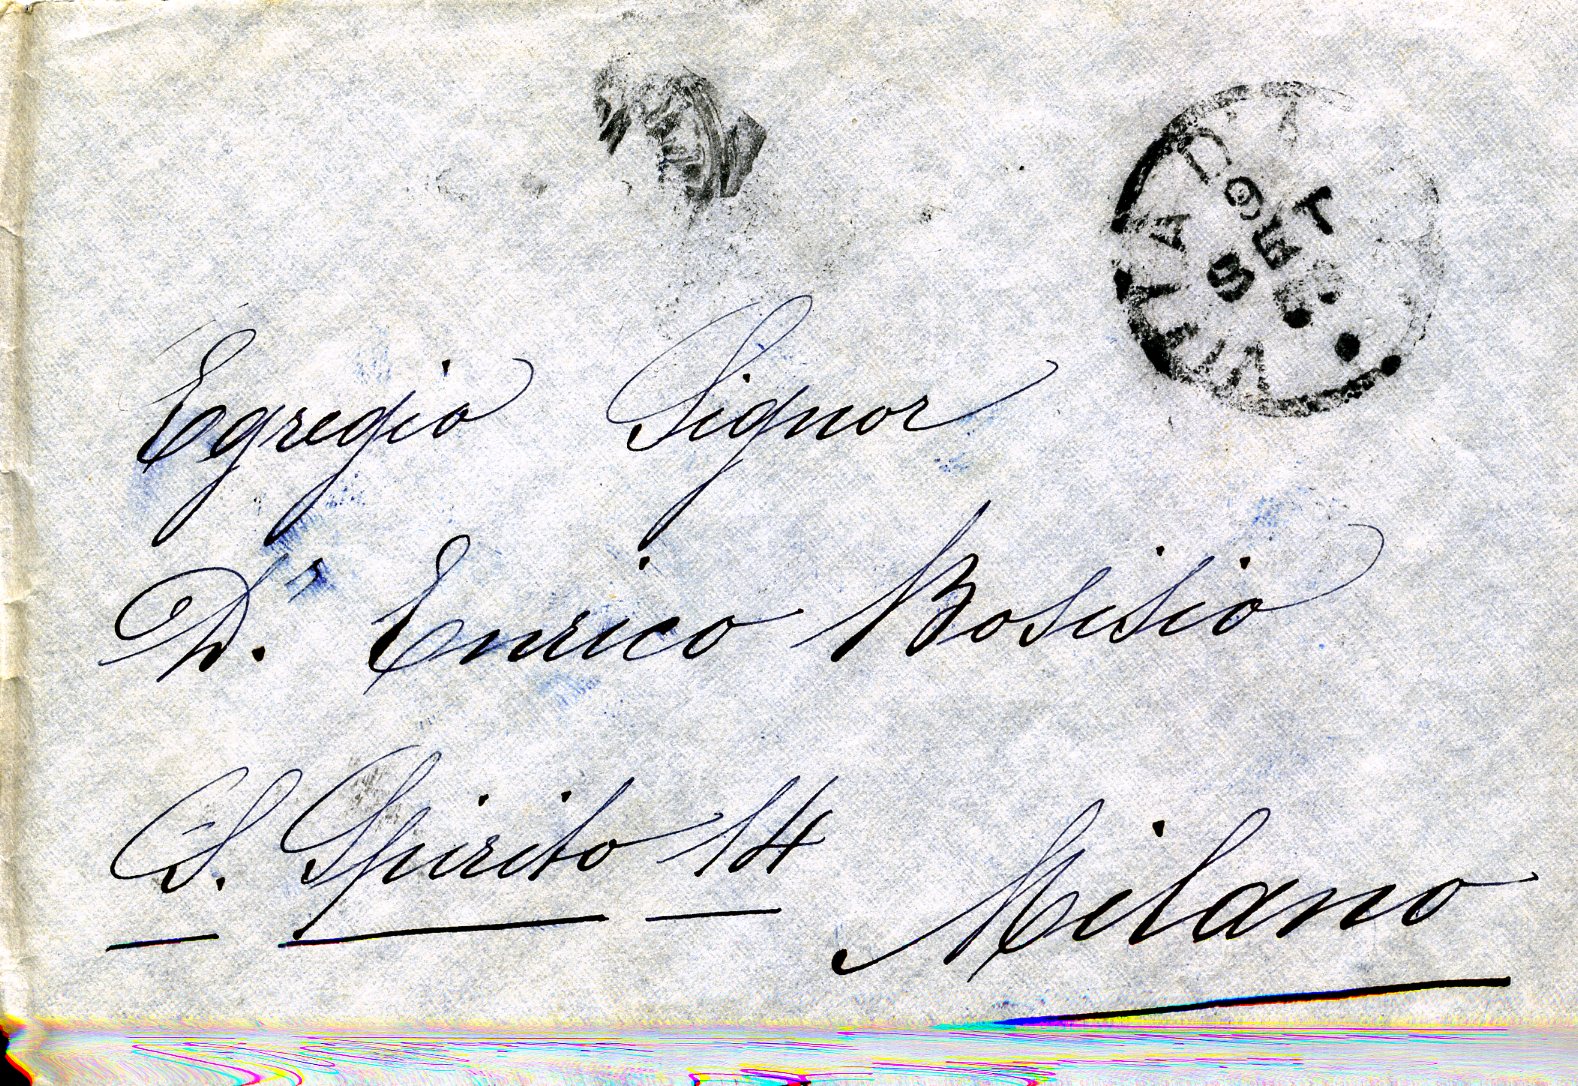 Egregio Signor
D.r Enrico Bosisio
S. Spirito 14
Milano